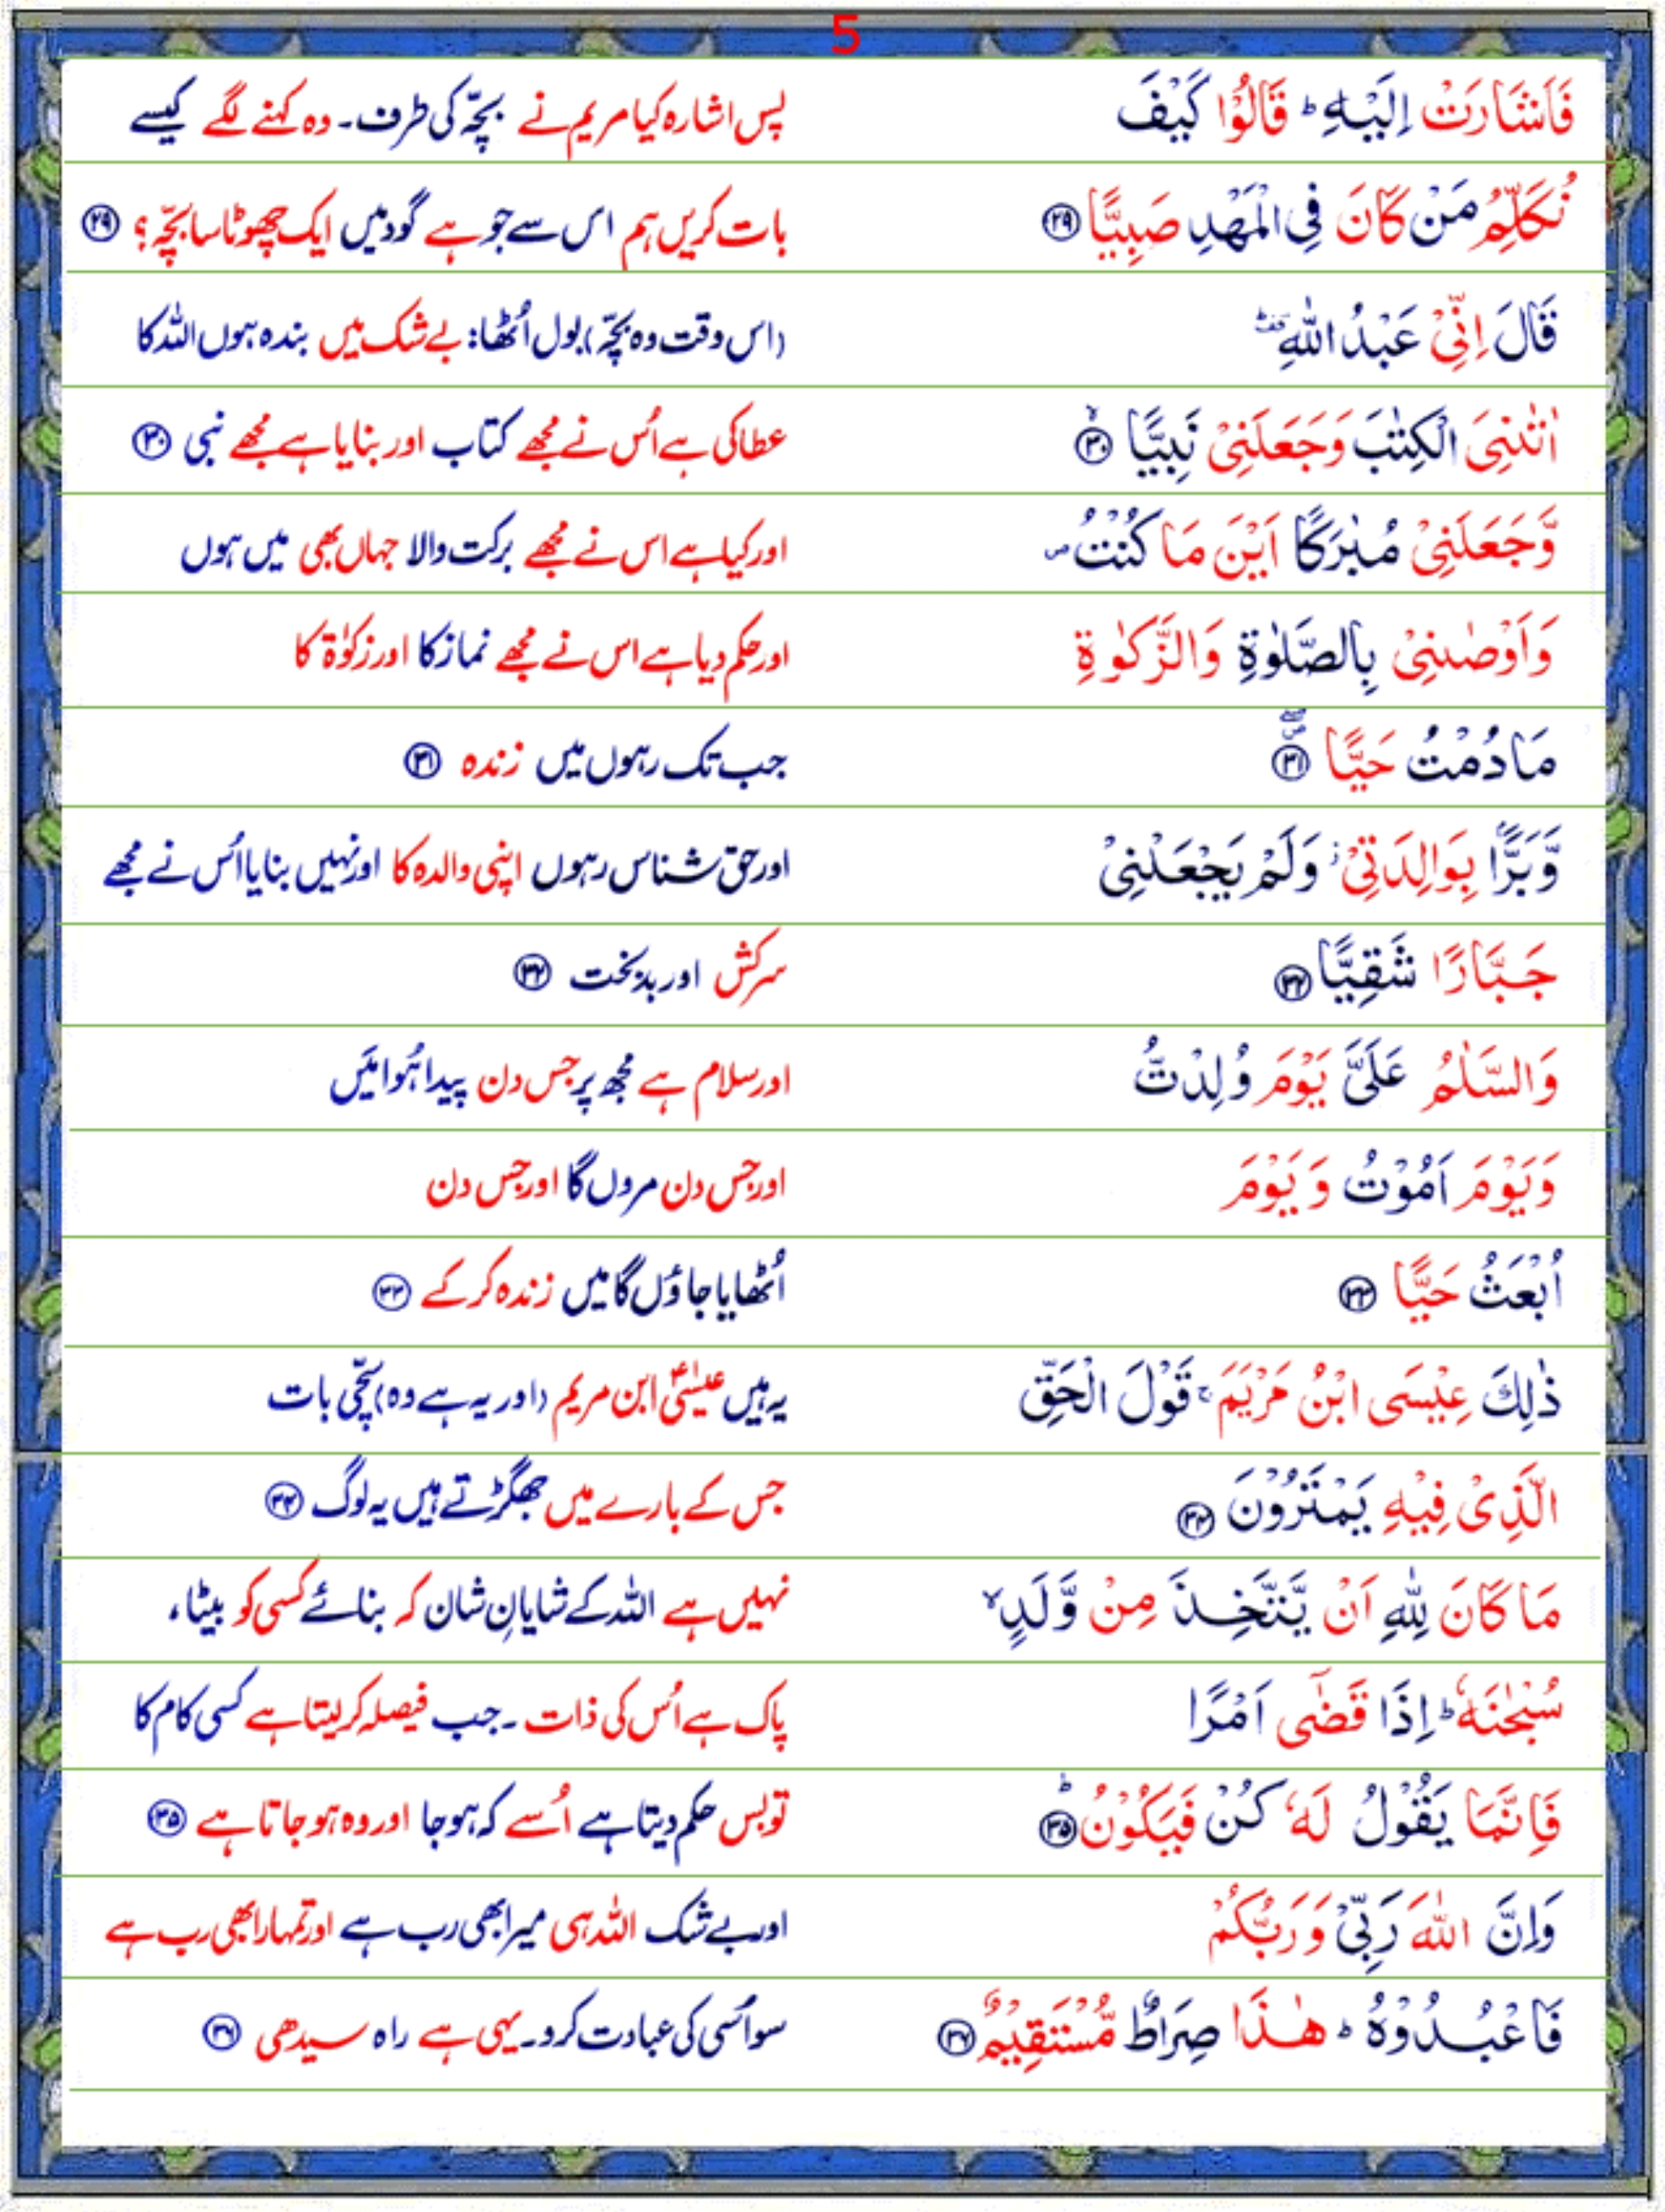 5
فَاَشَارَتْ اِلَيْهِ ؕ قَالُوْا كَيْفَ پس اشارہ کیا مریم نے بچّہ کی طرف۔ وہ کہنے لگے کیسے
نُكَلِّمُ مَنْ كَانَ فِى الْمَهْدِ صَبِيًّا ﴿۲۹﴾ بات کریں ہم اس سے جو ہے گود میں ایک چھوٹا سا بچّہ؟ ﴿۲۹﴾
قَالَ اِنِّىْ عَبْدُ اللّٰهِ ۛ (اس وقت وہ بچّہ) بول اُٹھا: بے شک میں بندہ ہوں اللہ کا
اٰتٰىنِىَ الْكِتٰبَ وَجَعَلَنِىْ نَبِيًّا ۙ﴿۳۰﴾ عطا کی ہے اُس نے مجھے کتاب اور بنایا ہے مجھے نبی ﴿۳۰﴾
وَّجَعَلَنِىْ مُبٰرَكًا اَيْنَ مَا كُنْتُ ۖ اور کیا ہے اس نے مجھے برکت والا جہاں بھی میں ہوں
وَاَوْصٰىنِىْ بِالصَّلٰوةِ وَالزَّكٰوةِ اور حکم دیا ہے اس نے مجھے نماز کا اور زکوٰۃ کا
مَا دُمْتُ حَيًّا ۖ﴿۳۱﴾ جب تک رہوں میں زندہ ﴿۳۱﴾
وَّبَرًّۢا بِوَالِدَتِىْ ۫ وَلَمْ يَجْعَلْنِىْ اور حق شناس رہوں اپنی والدہ کا اور نہیں بنایا اُس نے مجھے
جَبَّارًا شَقِيًّا ﴿۳۲﴾ سرکش اور بدبخت ﴿۳۲﴾
وَالسَّلٰمُ عَلَىَّ يَوْمَ وُلِدْتُّ اور سلام ہے مجھ پر جس دن پیدا ہُوا میَں
وَيَوْمَ اَمُوْتُ وَيَوْمَ اور جس دن مروں گا اور جس دن
اُبْعَثُ حَيًّا ﴿۳۳﴾ اُٹھایا جاؤں گا میں زندہ کر کے ﴿۳۳﴾
ذٰلِكَ عِيْسَى ابْنُ مَرْيَمَ ۚ قَوْلَ الْحَقِّ یہ ہیں عیسٰیؑ ابن مریم (اور یہ ہے وہ) سچّی بات
الَّذِىْ فِيْهِ يَمْتَرُوْنَ ﴿۳۴﴾ جس کے بارے میں جھگڑتے ہیں یہ لوگ ﴿۳۴﴾
مَا كَانَ لِلّٰهِ اَنْ يَّتَّخِذَ مِنْ وَّلَدٍ ۙ نہیں ہے اللہ کے شایانِ شان کہ بنائے کسی کو بیٹا،
سُبْحٰنَهٗ ؕ اِذَا قَضٰٓى اَمْرًا پاک ہے اُس کی ذات۔ جب فیصلہ کر لیتا ہے کسی کام کا
فَاِنَّمَا يَقُوْلُ لَهٗ كُنْ فَيَكُوْنُ ؕ﴿۳۵﴾ تو بس حکم دیتا ہے اُسے کہ ہو جا اور وہ ہو جاتا ہے ﴿۳۵﴾
وَاِنَّ اللّٰهَ رَبِّىْ وَرَبُّكُمْ اور بے شک اللہ ہی میرا بھی رب ہے اور تمہارا بھی رب ہے
فَاعْبُدُوْهُ ؕ هٰذَا صِرَاطٌ مُّسْتَقِيْمٌ ﴿۳۶﴾ سو اُسی کی عبادت کرو۔ یہی ہے راہ سیدھی ﴿۳۶﴾